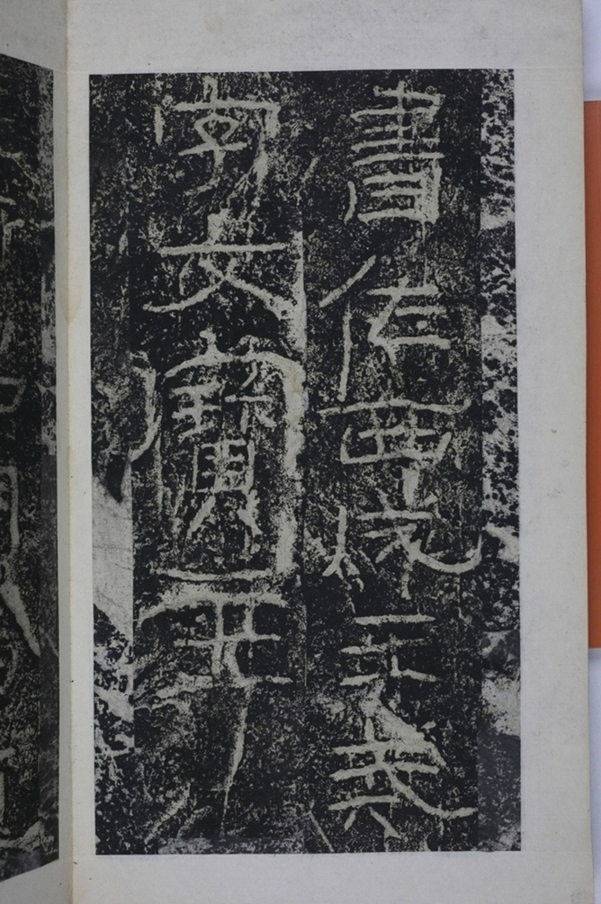 書佐西成王戒
字文寶主